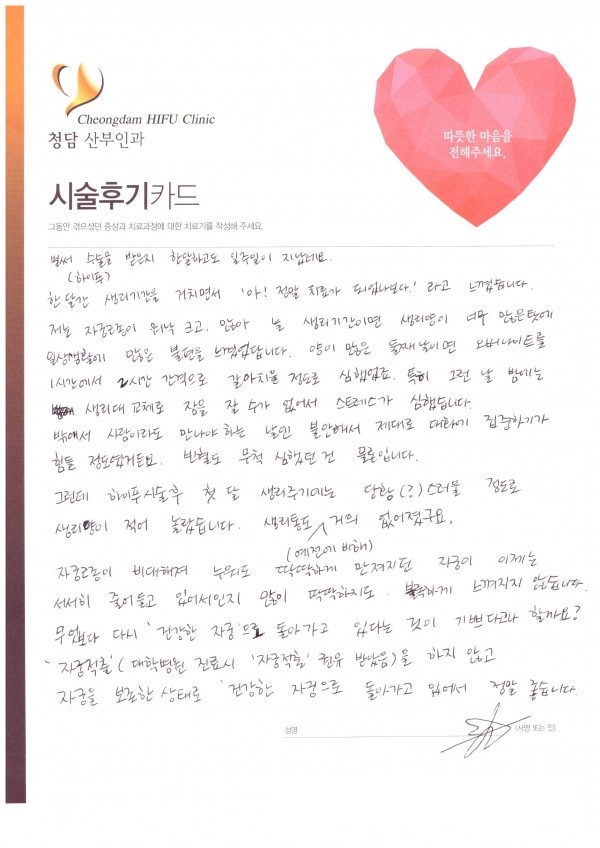 Cheongdam HIFU Clinic
청담 산부인과
따뜻한 마음을
전해주세요.
시술후기카드
그동안 겪으셨던 증상과 치료과정에 대한 치료기를 작성해 주세요.
벌써 수술을 받은지 한달하고도 일주일이 지났네요.
(하이푸)
한달간 생리기간을 거치면서 '아! 정말 치료가 되었나보다.' 라고 느꼈습니다.
저는 자궁근종이 워낙 크고, 많아 늘 생리기간이면 생리양이 너무 많은탓에
일상생활에 많은 불편을 느꼈었답니다. 양이 많은 둘째날이면 오버나이트를
1시간에서 2시간 간격으로 갈아치울 정도로 심했었죠. 특히 그런 날 밤에는
생리대 교체로 잠을 잘 수가 없어서 스트레스가 심했습니다.
밖에서 사람이라도 만나야 하는 날엔 불안해서 제대로 대화에 집중하기가
힘들 정도였거든요. 빈혈도 무척 심했던 건 물론입니다.
그런데 하이푸시술후 첫 달 생리주기에는 당황(?)스러울 정도로
생리양이 적어 놀랐습니다. 생리통도 거의 없어졌구요.
(예전에 비해)
자궁근종이 비대해져 누워도 딱딱하게 만져지던 자궁이 이제는
서서히 줄어들고 있어서인지 많이 딱딱하지도 불룩하게 느껴지지 않습니다.
무엇보다 다시 '건강한 자궁'으로 돌아가고 있다는 것이 기쁘다고나 할까요?
'자궁적출'(대학병원 진료시 '자궁적출' 권유 받았음)을 하지 않고
자궁을 보존한 상태로 '건강한 자궁으로 돌아가고 있어서 정말 좋습니다.
성명
(서명 또는 인)